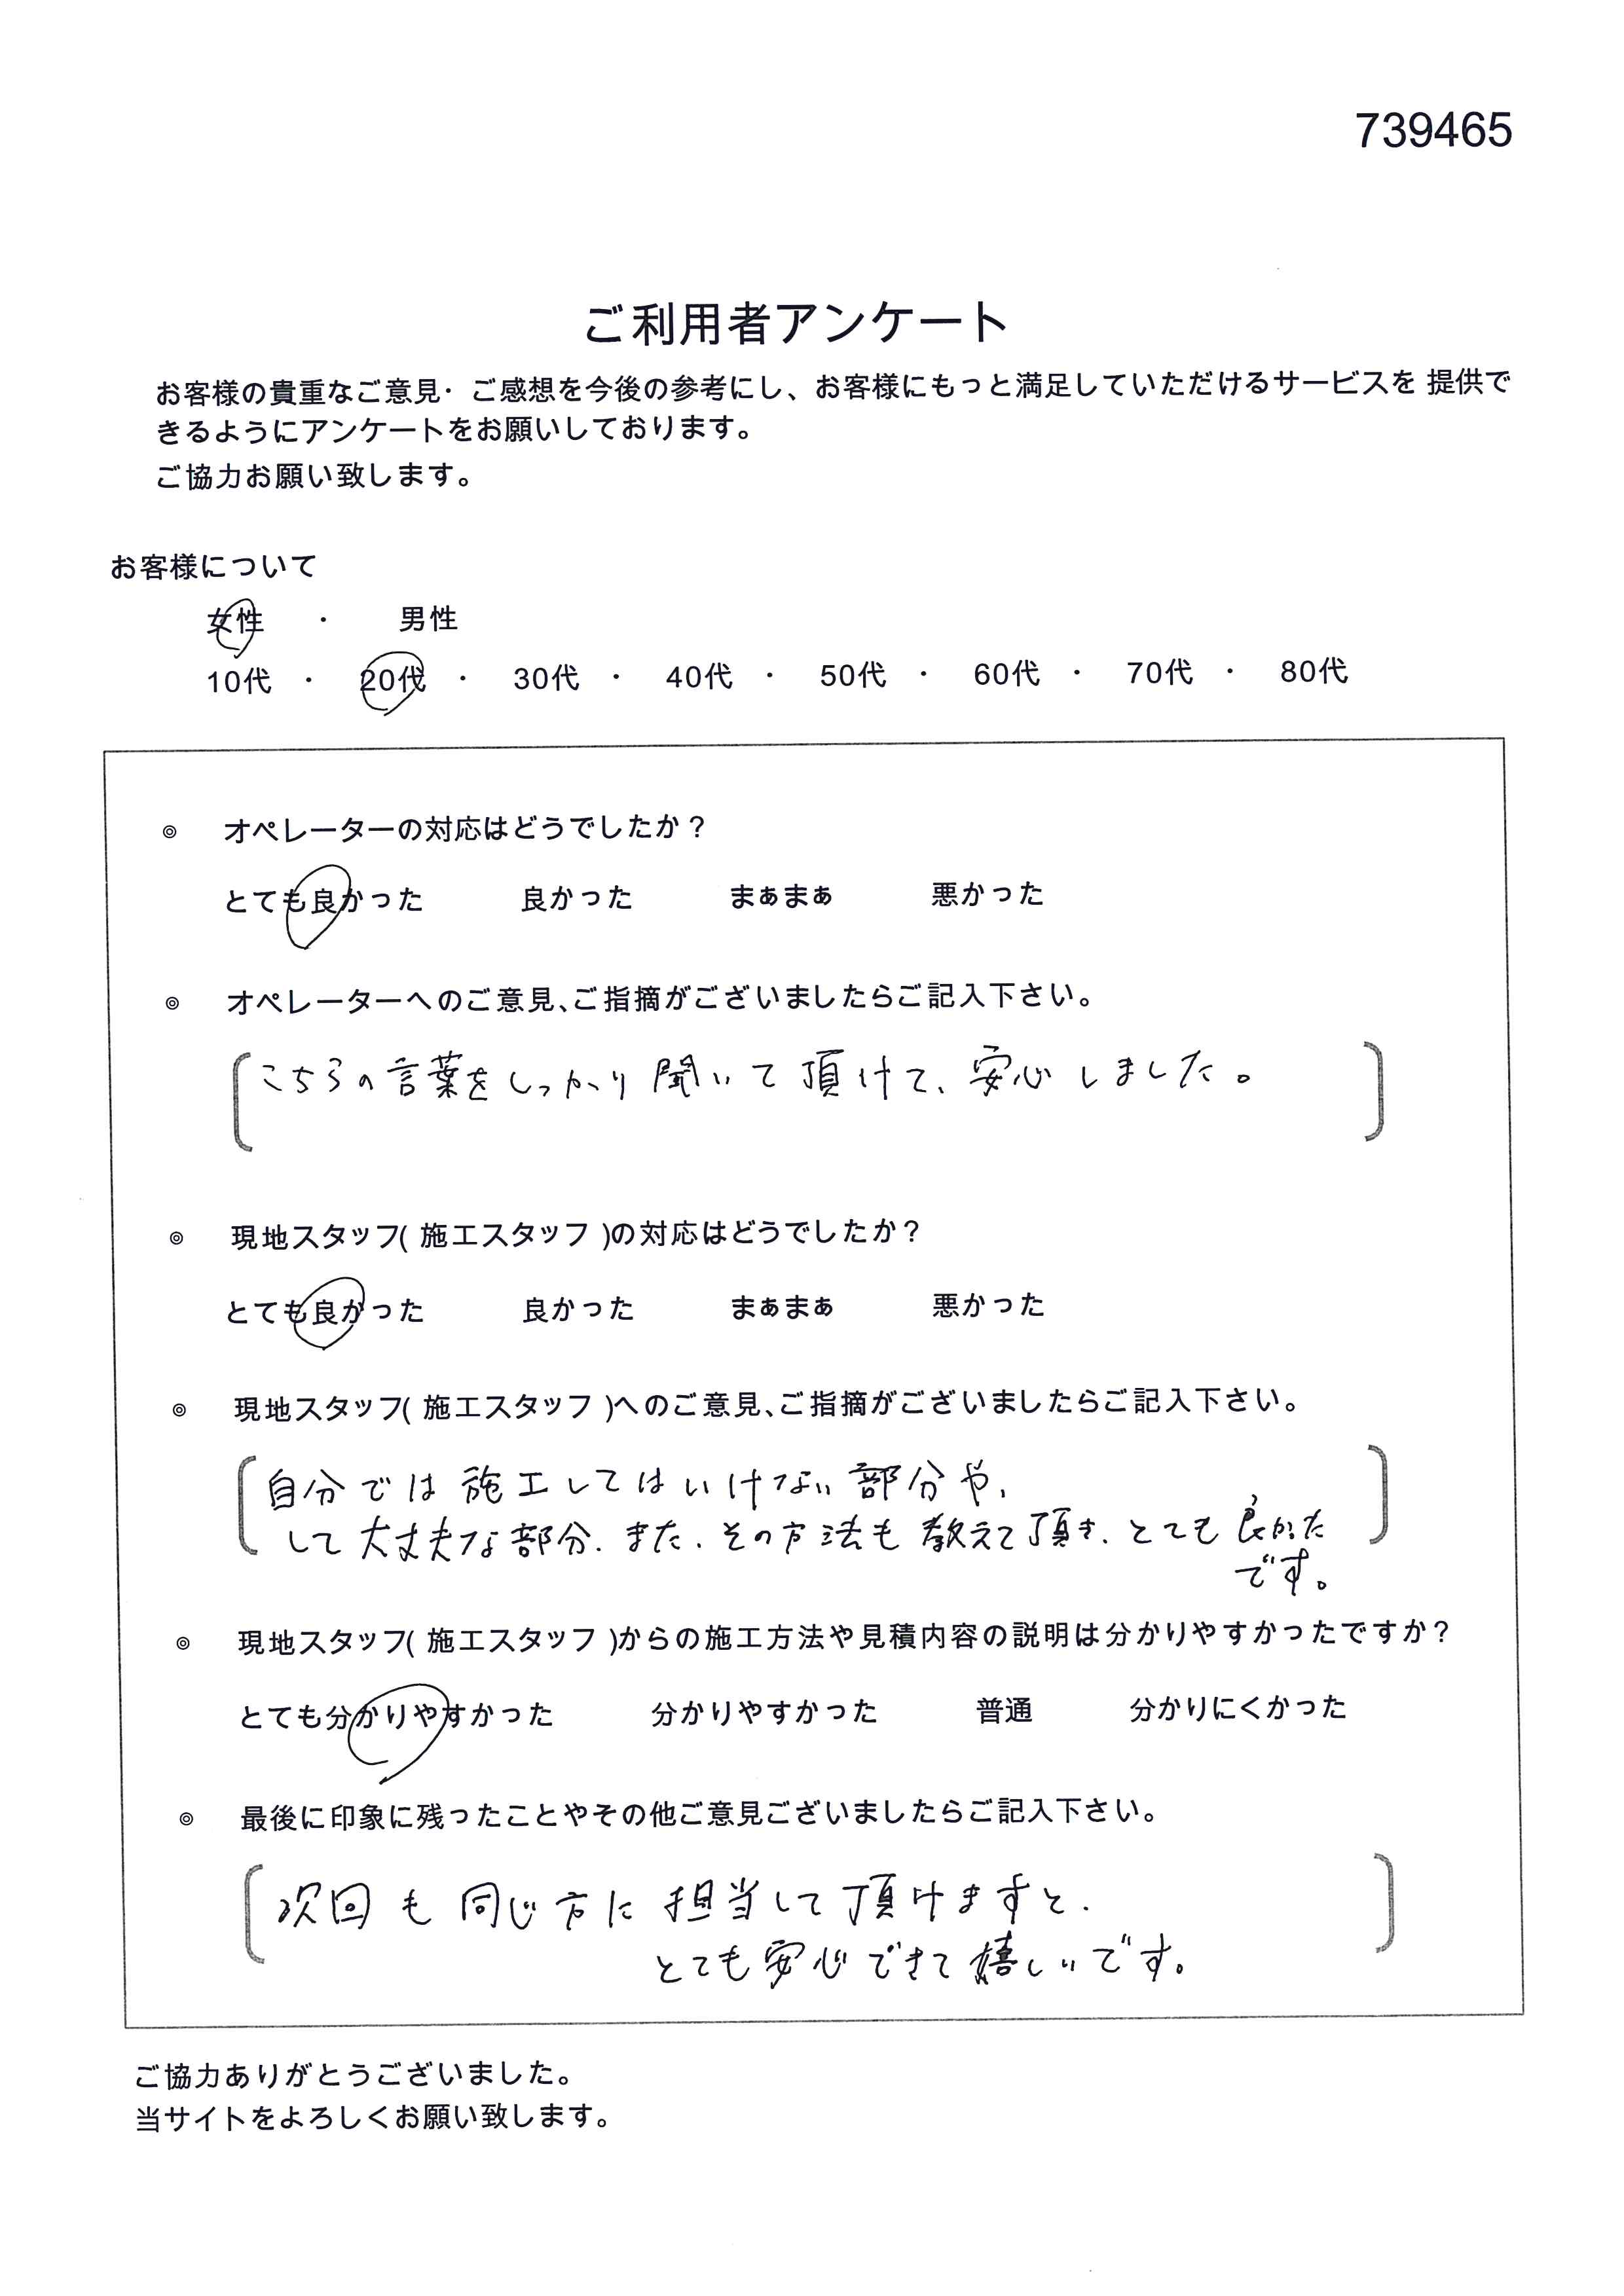 739465
ご利用者アンケート
お客様の貴重なご意見・ご感想を今後の参考にし、お客様にもっと満足していただけるサービスを 提供で
きるようにアンケートをお願いしております。
ご協力お願い致します。
お客様について
女性 ・ 男性
10代 ・ 20代 ・ 30代 ・ 40代 ・ 50代 ・ 60代 ・ 70代 ・ 80代
◎ オペレーターの対応はどうでしたか？
とても良かった 良かった まぁまぁ 悪かった
◎ オペレーターへのご意見、ご指摘がございましたらご記入下さい。
こちらの言葉をしっかり聞いて頂けて、安心しました。
◎ 現地スタッフ( 施工スタッフ )の対応はどうでしたか？
とても良かった 良かった まぁまぁ 悪かった
◎ 現地スタッフ( 施工スタッフ )へのご意見、ご指摘がございましたらご記入下さい。
自分では施工してはいけない部分や、
して大丈夫な部分、また、その方法も教えて頂き、とても良かった
です。
◎ 現地スタッフ( 施工スタッフ )からの施工方法や見積内容の説明は分かりやすかったですか？
とても分かりやすかった 分かりやすかった 普通 分かりにくかった
◎ 最後に印象に残ったことやその他ご意見ございましたらご記入下さい。
次回も同じ方に担当して頂けますと、
とても安心できて嬉しいです。
ご協力ありがとうございました。
当サイトをよろしくお願い致します。